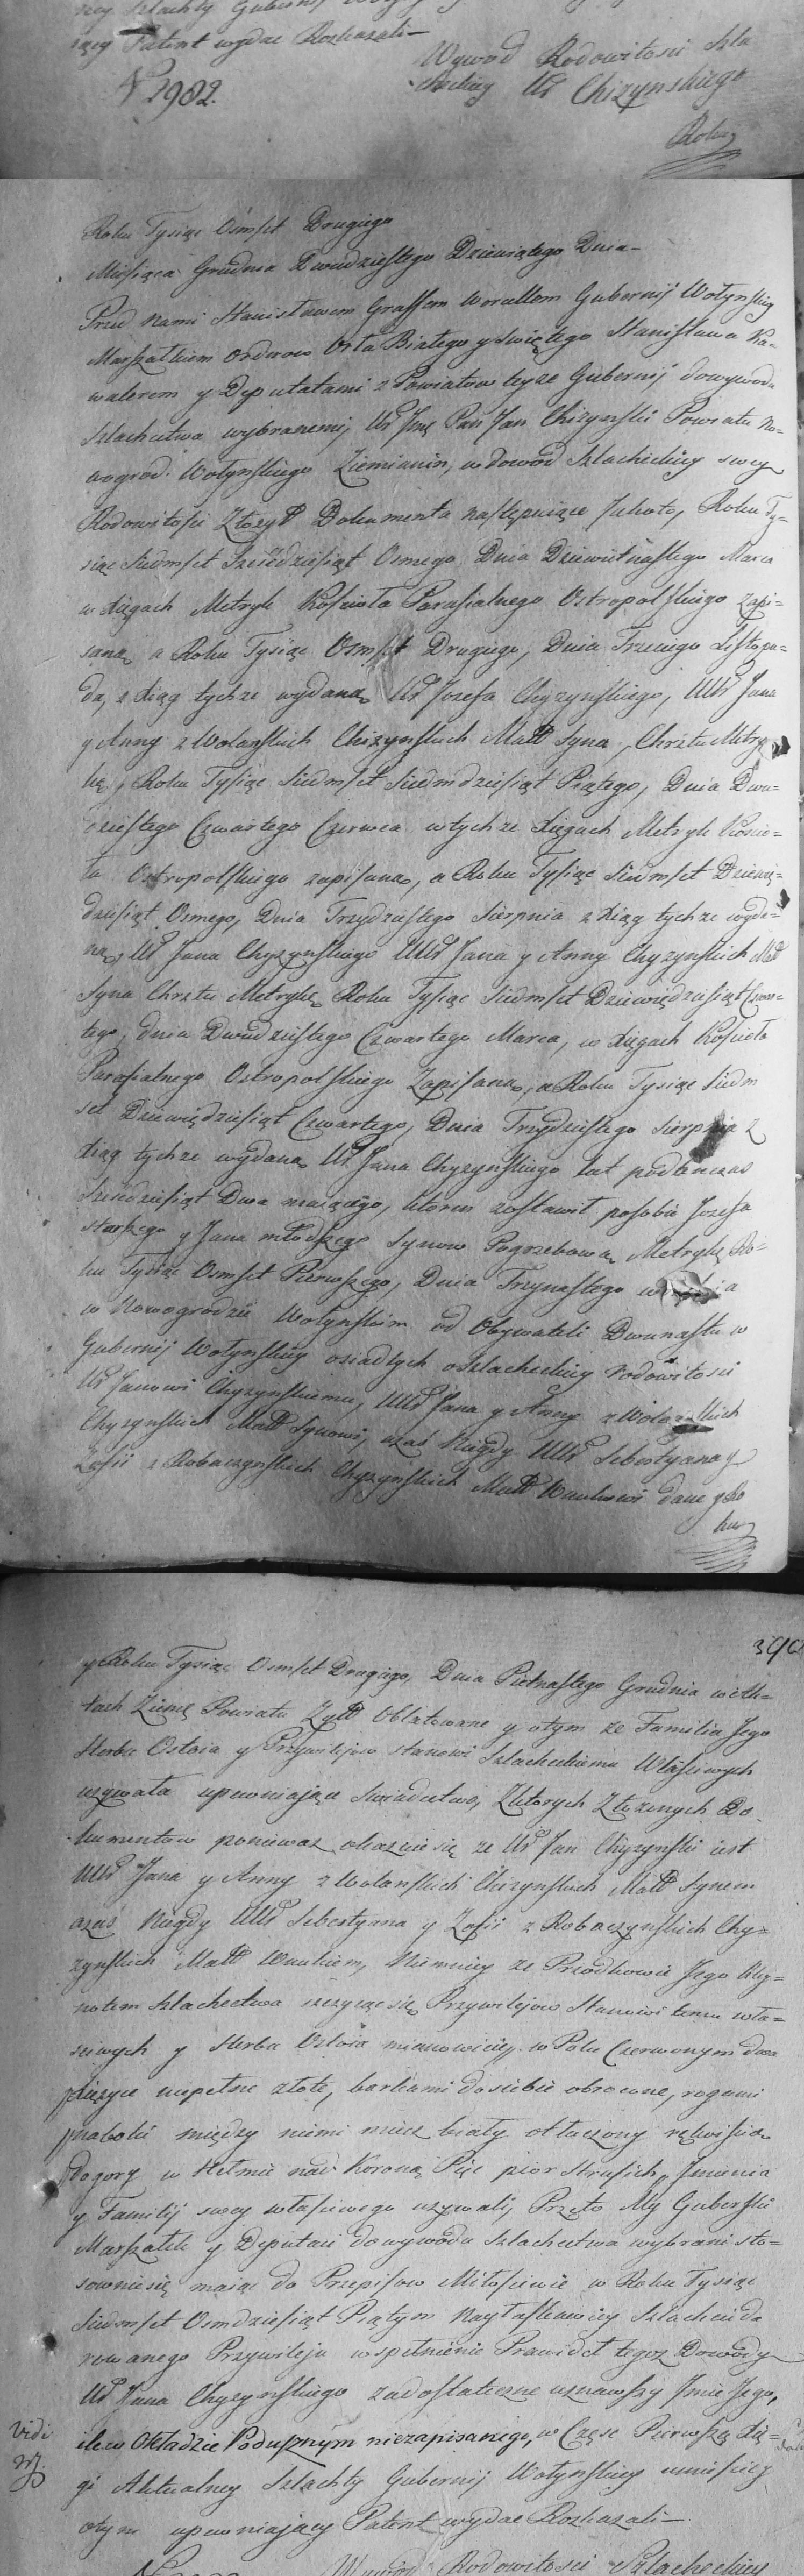 ney Szlachty Gubernij
iący Patent wydac Rozkazali —
N 1982.
Wywod Rodowitosci Szla
checkiey Ur Chizynskiego
Roku
Roku Tysiąc Osmset Drugiego
Miesiąca Grudnia Dwudziestego Dziewiątego Dnia —
Przed Nami Stanisławem Graffem Worcellem Gubernij Wołynskiey
Marszałkiem Orderow Orła Białego y Swiętego Stanisława Ka=
walerem y Deputatami z Powiatow teyze Gubernij do wywodu
Szlachectwa wybranemi, Ur Jmć Pan Jan Chizynski Powiatu No=
wogrod. Wołynskiego Ziemianin, w dowod Szlacheckiey swey
Rodowitosci Złozył Dokumenta następuiące Jakoto, Roku Ty=
siąc Siedmset Szesdziesiąt Osmego Dnia Dziewiętnastego Marca
w xięgach Metryk Koscioła Parafialnego Ostropolskiego zapi=
saną a Roku Tysiąc Osmset Drugiego, Dnia Trzeciego Listopa=
da, z xiąg tychze wydaną Ur Jozefa Chyzynskiego, UUr Jana
y Anny z Wolanskich Chizynskich Małł Syna, Chrztu Metry=
kę, Roku Tysiąc Siedmset Siedmdziesiąt Piątego, Dnia Dwu=
dziestego Czwartego Czerwca w tychze xięgach Metryk Koscio=
ła Ostropolskiego zapisaną, a Roku Tysiąc Siedmset Dziewię=
dziesiąt Osmego, Dnia Trzydziestego Sierpnia z xiąg tychze wyda=
ną, Ur Jana Chyzynskiego UUr Jana y Anny Chyzynskich Małł
Syna Chrztu Metrykę, Roku Tysiąc Siedmset Dziewiędziesiąt Czwar=
tego, dnia Dwudziestego Czwartego Marca, w xięgach Koscioła
Parafialnego Ostropolskiego Zapisaną, a Roku Tysiąc Siedm
set Dziewiędziesiąt Czwartego, Dnia Trzydziestego Sierpnia z
xiąg tychze wydaną Ur Jana Chyzynskiego lat podtenczas
Szesdziesiąt Dwa maiącego, ktoren zostawił posobie Jozefa
starszego y Jana młodszego Synow Pogrzebową Metrykę, Ro=
ku Tysiąc Osmset Pierwszego, Dnia Trzynastego
w Nowogrodzie Wołynskim od Obywateli Dwunastu w
Gubernij Wołynskiey osiadłych o Szlacheckiey Rodowitosci
Ur Janowi Chyzynskiemu, UUr Jana y Anny z Wolanskich
Chyzynskich Małł Synowi, azas Niegdy UUr Sebestyana y
Zofii z Robaczynskich Chyzynskich Małł Wnukowi dane
390
y Roku Tysiąc Osmset Drugiego, Dnia Pietnastego Grudnia w Ak=
tach Ziemś Powiatu Zytt Oblatowane y o tym ze Familia Jego
Herbu Ostoia y Przywilejow stanowi Szlacheckiemu Własciwych
uzywała upewniaiące Swiadectwo, Z ktorych Złozonych Do=
kumentow poniewaz okazuie się ze Ur Jan Chyzynski iest
UUr Jana y Anny z Wolanskich Chizynskich Małł Synem
azas Niegdy UUr Sebestyana y Zofii z Robaczynskich Chy=
zynskich Małł Wnukiem, Niemniey ze Przodkowie Jego Kley=
notem Szlachectwa szczycąc się Przywilejow Stanowi temu wła=
sciwych y Herbu Ostoia mianowicie, w Polu Czerwonym dwa
xiężyce niepełne złote, barkami do siebie obrocone, rogami
naboki między niemi miecz biały otłuczony rękoiscia
dogory w Hełmie nad Koroną Pięc pior Strusich, Jmienia
y Familij swey własciwego uzywali, Przeto My Guberski
Marszałek y Deputaci do wywodu Szlachectwa wybrani sto=
sownie się maiąc do Przepisow Miłosciwie w Roku Tysiąc
Siedmset Osmdziesiąt Piątym Nayłaskawiey Szlachcie da
rowanego Przywileju w spełnienie Prawideł tegoz Dowody
Ur Jana Chyzynskiego zadostateczne uznawszy Jmie Jego,
ile w Okładzie Podusznym niezapisanego, w Częsc Pierwszą Xię=
gi Aktualney Szlachty Gubernij Wołynskiey umiescicy
o tym upewniaiący Patent wydac Rozkazali —
Vidi
Wywod Rodowitosci Szlacheckiey